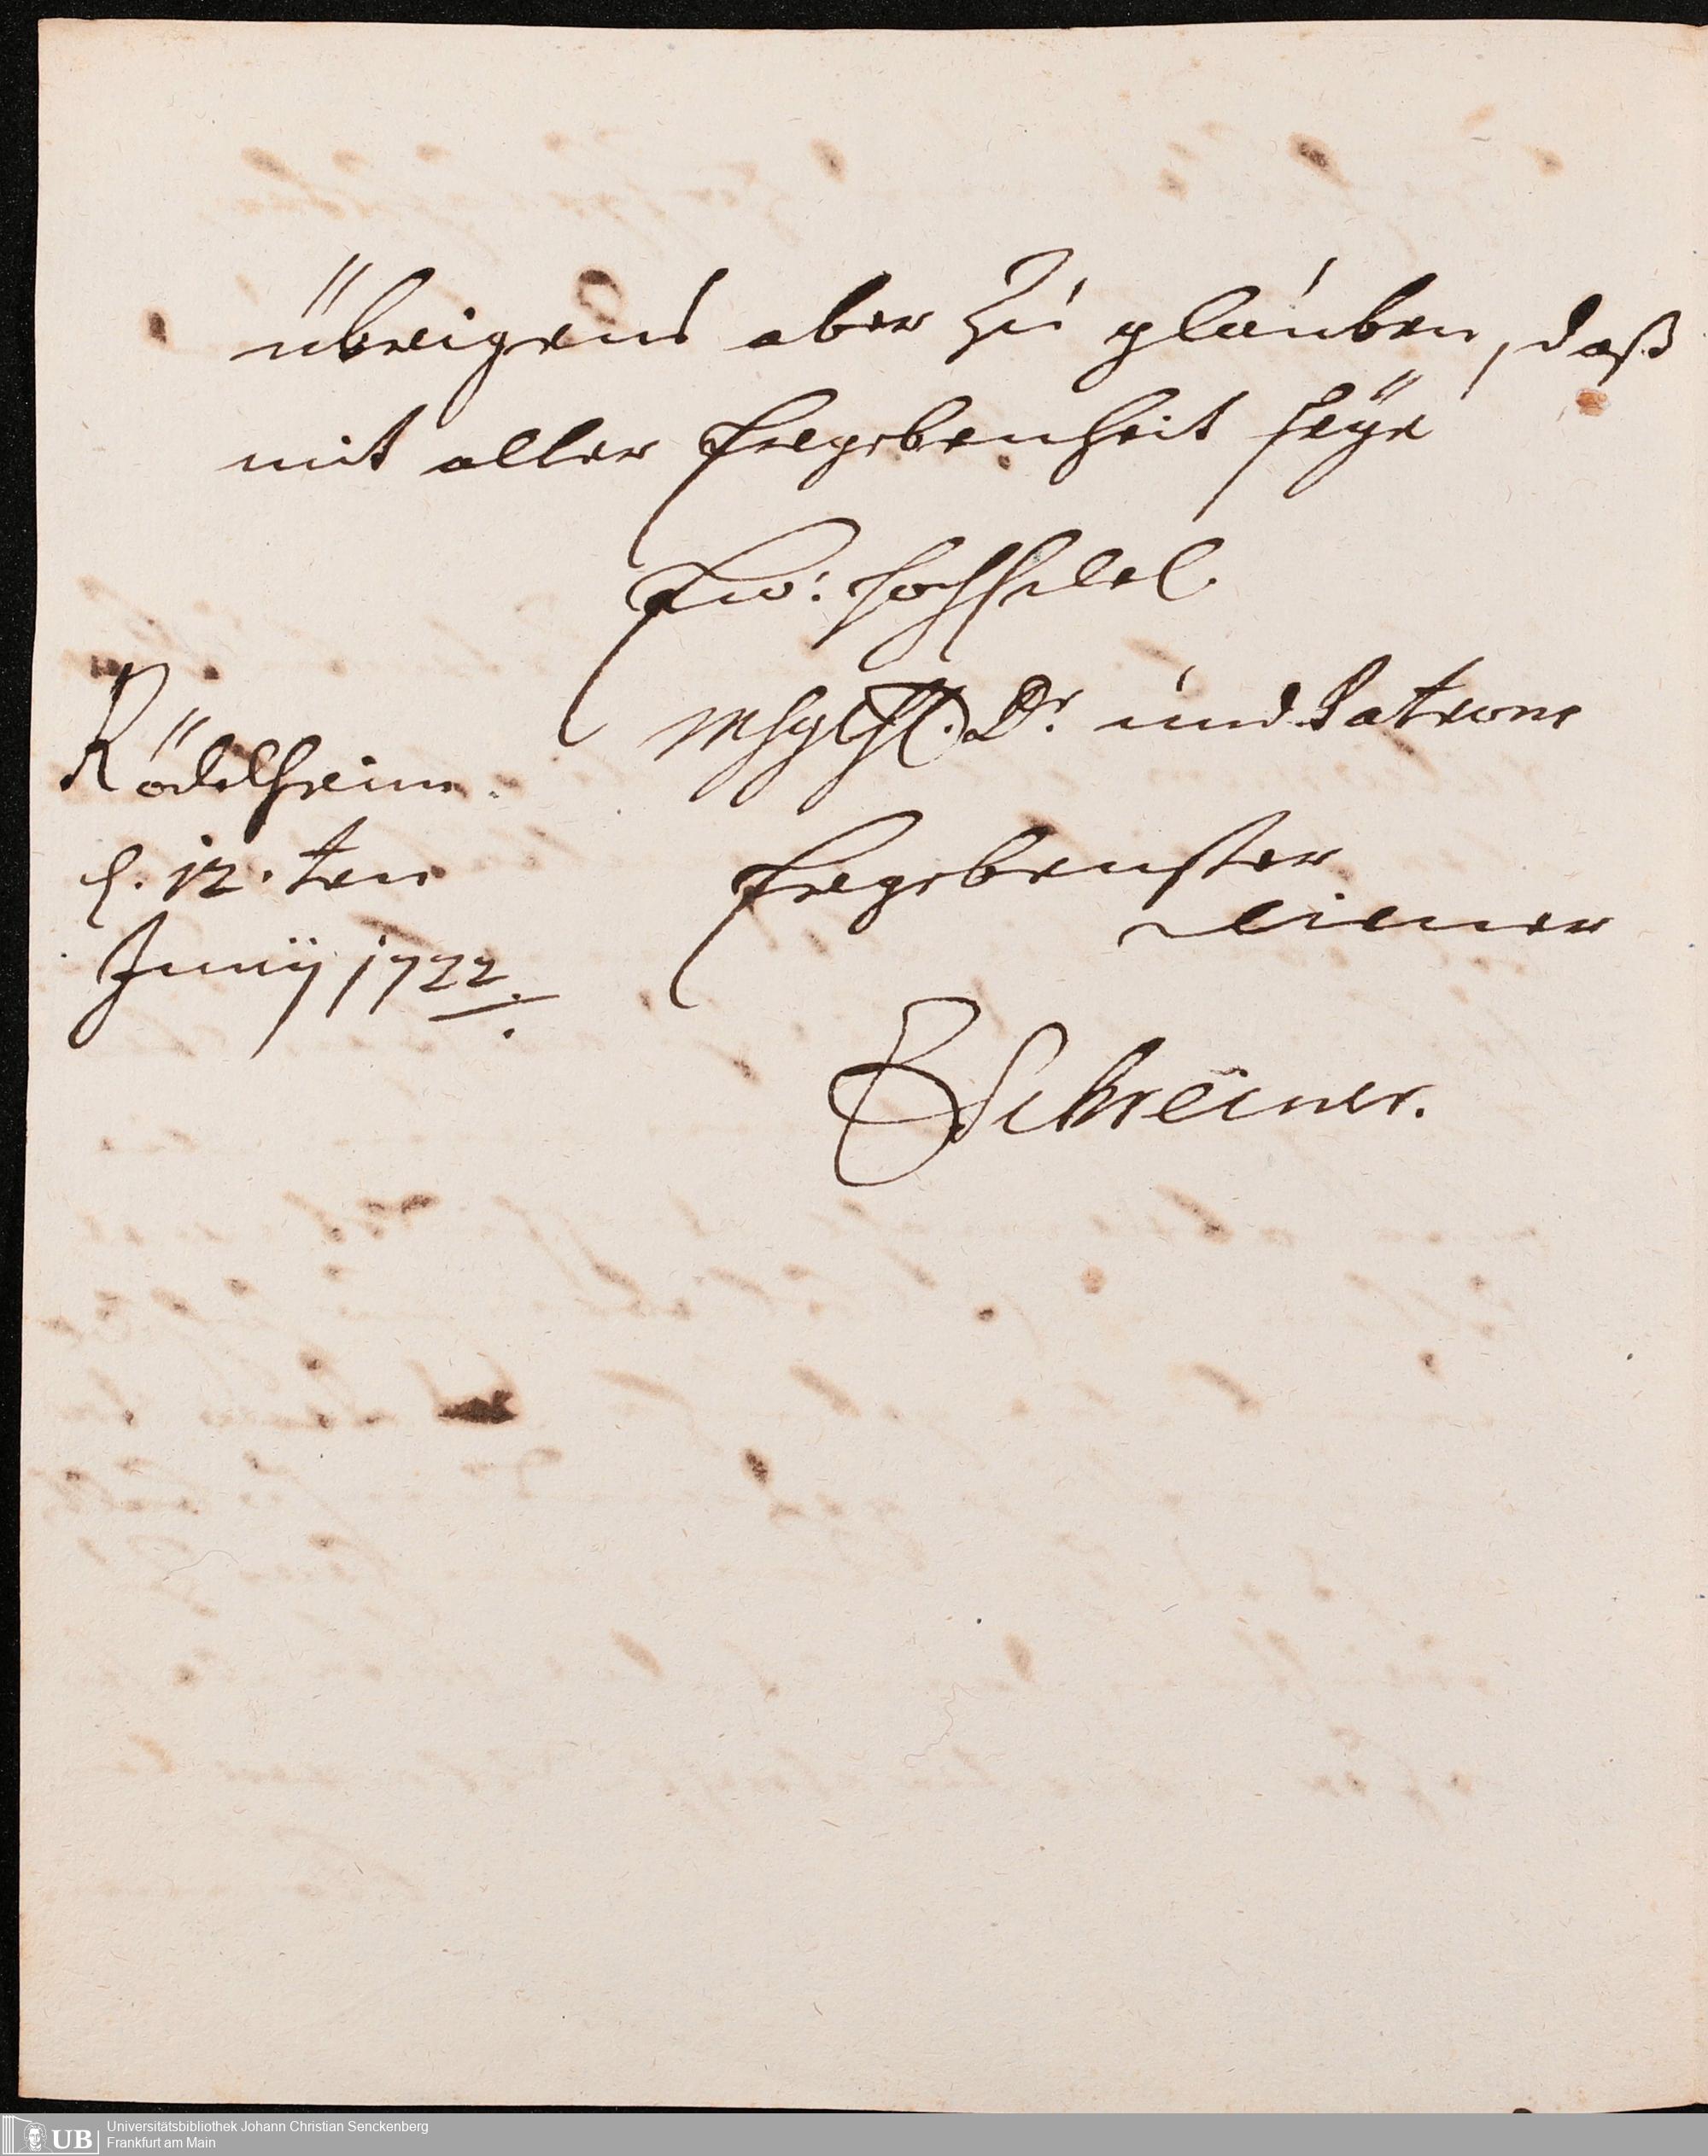 übrigens aber zu glauben, daß
mit aller Ergebenheit seye
Ew: HochEdel
Mhghl. Dr. und Patrons
Rödelheim
d. 12. ten
Junij 1722.
Ergebenster
Diener
Schreiner.
UB Universitätsbibliothek Johann Christian Senckenberg
Frankfurt am Main